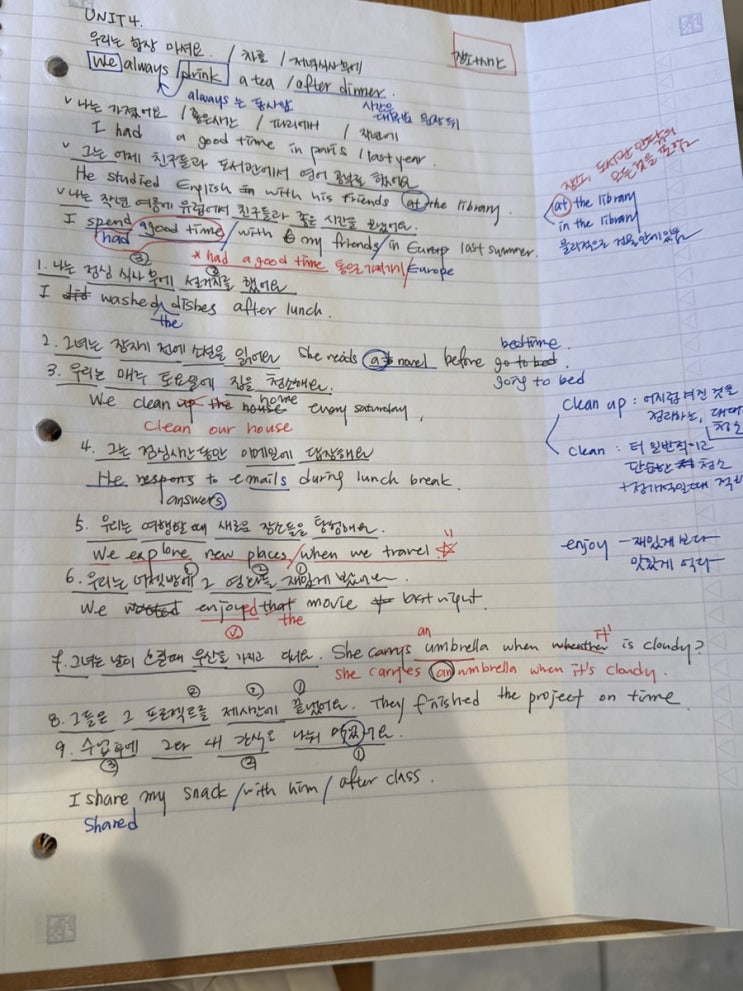 UNIT 4.
우리는 항상 마셔요. / 차를 / 저녁식사 후에
장소+시간
We always drink a tea / after dinner.
always는 동사앞
시간은 대부분 문장 뒤
v 나는 가졌어요 / 좋은시간 / 파리에서 / 작년에
I had a good time in paris / last year.
v 그는 어제 친구들과 도서관에서 영어 공부를 했어요
He studied English in with his friends at the library.
장소, 도서관 안팎의 모든것을 포함
at the library
in the library
물리적으로 건물안에 있음
v 나는 작년 여름에 유럽에서 친구들과 좋은 시간을 보냈어요.
I spend a good time / with my friends / in Europ last summer.
had
* had a good time 통으로 기억하기 / Europe
1. 나는 점심 식사 후에 설거지를 했어요
I did washed dishes after lunch.
the
2. 그녀는 잠자기 전에 소설을 읽어요 She reads a novel before go to bed.
bedtime.
going to bed
3. 우리는 매주 토요일에 집을 청소해요.
We clean up the house home every saturday,
clean our house
clean up : 어지럽혀진 것을 정리하는,
clean : 더 일반적이고 단순한 청소
4. 그는 점심시간 동안 이메일에 답장해요
He respons to emails during lunch break.
answers
5. 우리는 여행할 때 새로운 장소들을 탐험해요.
We explore new places / when we travel ☆
enjoy - 재밌게 보다
맛있게 먹다
6. 우리는 어젯밤에 그 영화를 재밌게 봤어요.
We wacted enjoyed that movie last night.
the
7. 그녀는 날이 흐릴때 우산을 가지고 다녀요. She carrys umbrella when wheather is cloudy?
an
it'
she carryes an umbrella when it's cloudy.
8. 그들은 그 프로젝트를 제시간에 끝냈어요. They finished the project on time
9. 수업 후에 그와 내 간식을 나눠 먹었어요.
I share my snack / with him / after class.
Shared